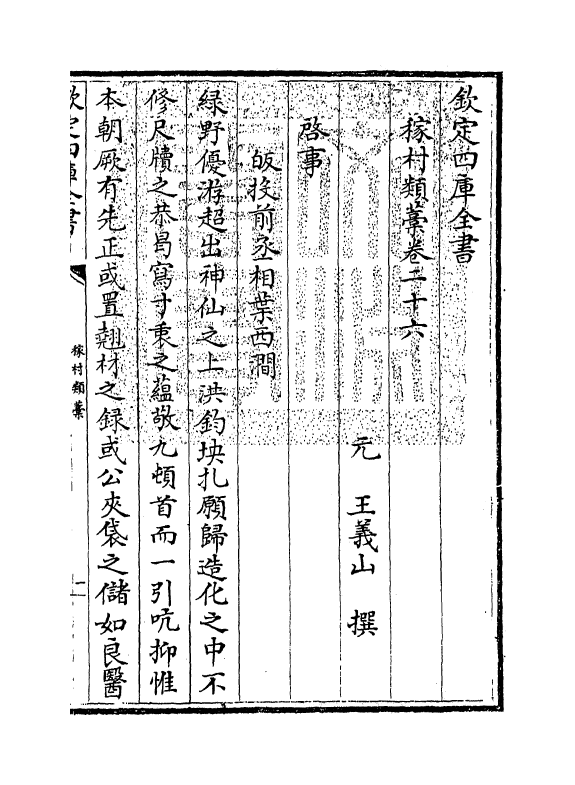 欽定四庫全書
稼村類藳卷二十六
元 王義山 撰
啓事
皈投前丞相葉西澗
綠野優游超出神仙之上洪鈞坱圠願歸造化之中不
修尺牘之恭曷寫寸衷之蘊敬九頓首而一引吭抑惟
本朝厥有先正或置翹材之録或公夾袋之儲如良醫
欽定四庫全書
稼村類藳
一